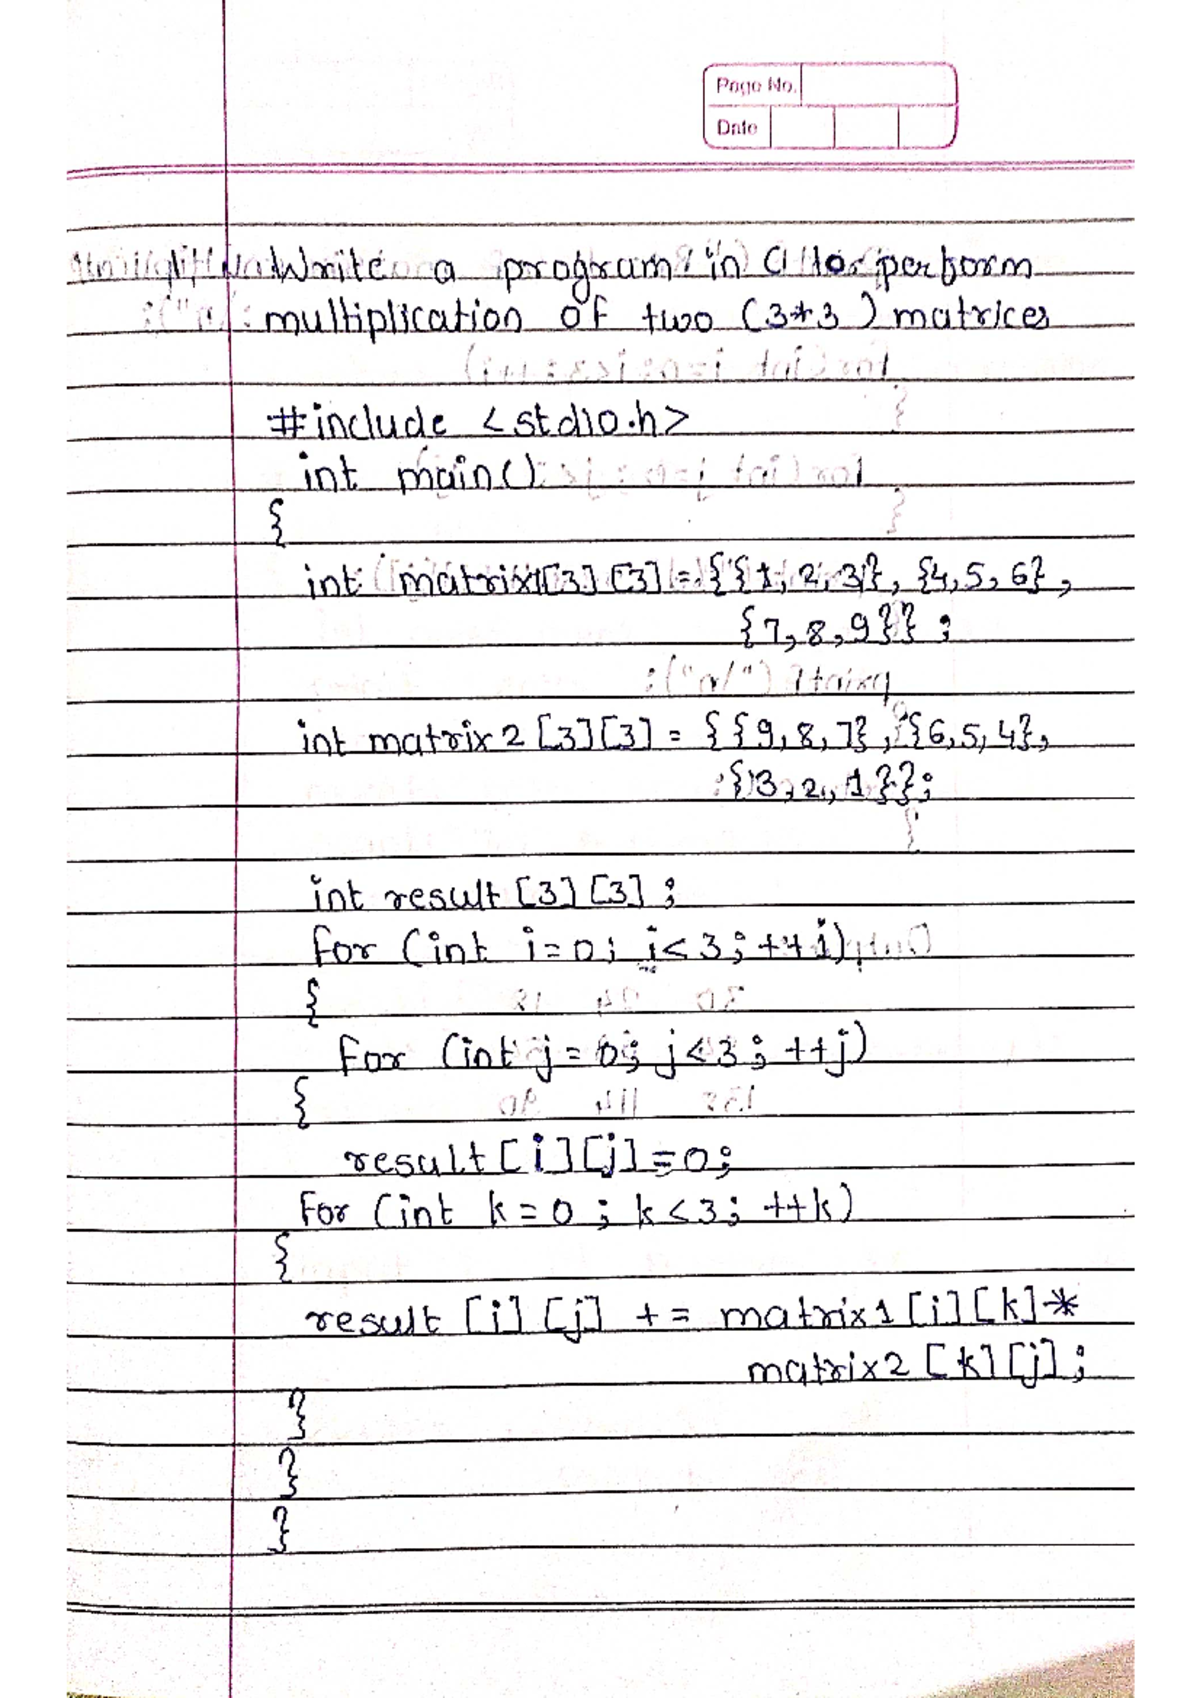 Page No.
Date
Write a program in C to perform
multiplication of two (3*3) matrices
#include <stdio.h>
int main()
{
int matrix1[3][3] = {{1, 2, 3}, {4, 5, 6},
{7, 8, 9}};
int matrix2 [3][3] = {{9, 8, 7}, {6, 5, 4},
{3, 2, 1}};
int result [3][3];
for (int i = 0; i < 3; ++i)
{
for (int j = 0; j < 3; ++j)
{
result [i][j] = 0;
for (int k = 0; k < 3; ++k)
{
result [i][j] += matrix1 [i][k] *
matrix2 [k][j];
}
}
}